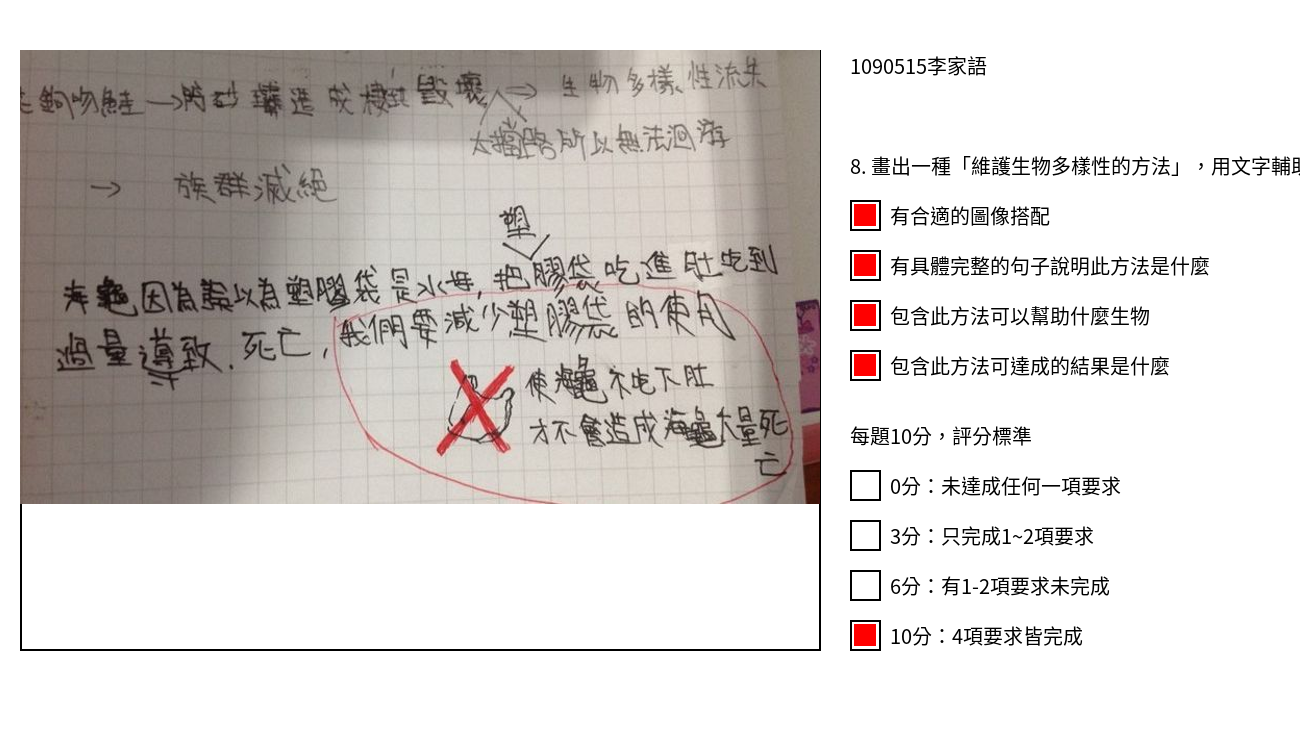 鉤吻鮭→防砂壩造成棲地毀壞⇒生物多樣性流失
太擋路所以無法迴游
→ 族群滅絕
塑
海龜因為誤以為塑膠袋是水母,把膠袋吃進肚吃到
過量導致.死亡,我們要減少塑膠袋的使用
使海龜不吃下肚
才不會造成海龜大量死
亡
1090515李家語
8. 畫出一種「維護生物多樣性的方法」，用文字輔助
有合適的圖像搭配
有具體完整的句子說明此方法是什麼
包含此方法可以幫助什麼生物
包含此方法可達成的結果是什麼
每題10分，評分標準
0分：未達成任何一項要求
3分：只完成1~2項要求
6分：有1-2項要求未完成
10分：4項要求皆完成